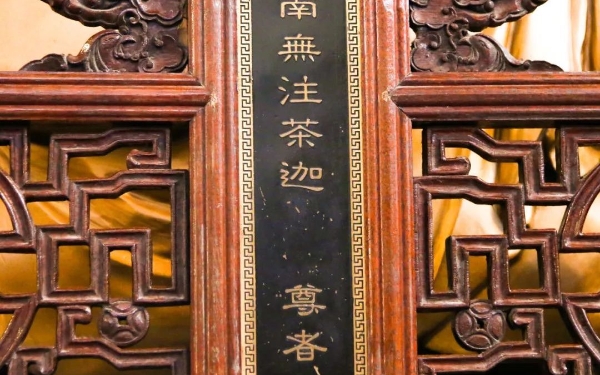 南無注茶迦 尊者